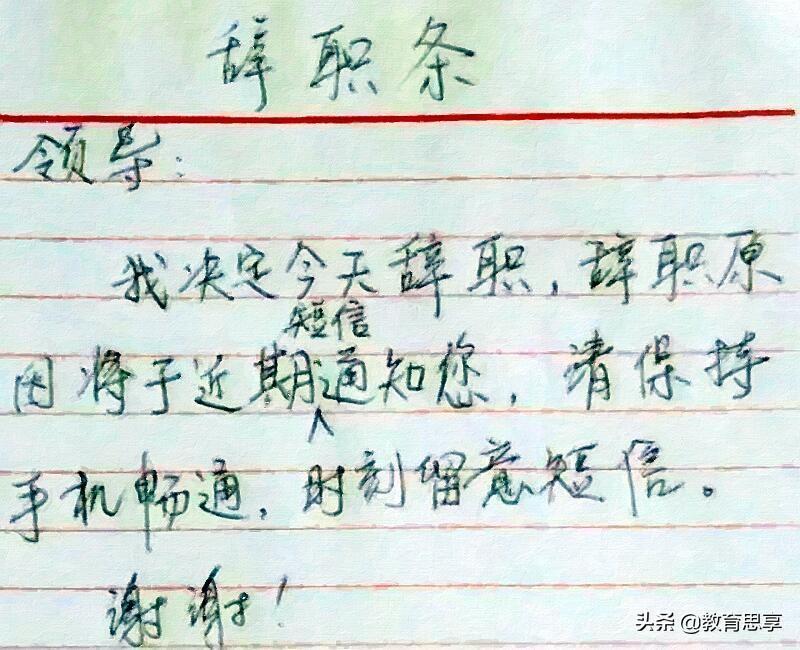 辞职条
领导：
我决定今天辞职，辞职原
因将于近期短信通知您，请保持
手机畅通，时刻留意短信。
谢谢！
头条 @教育思享